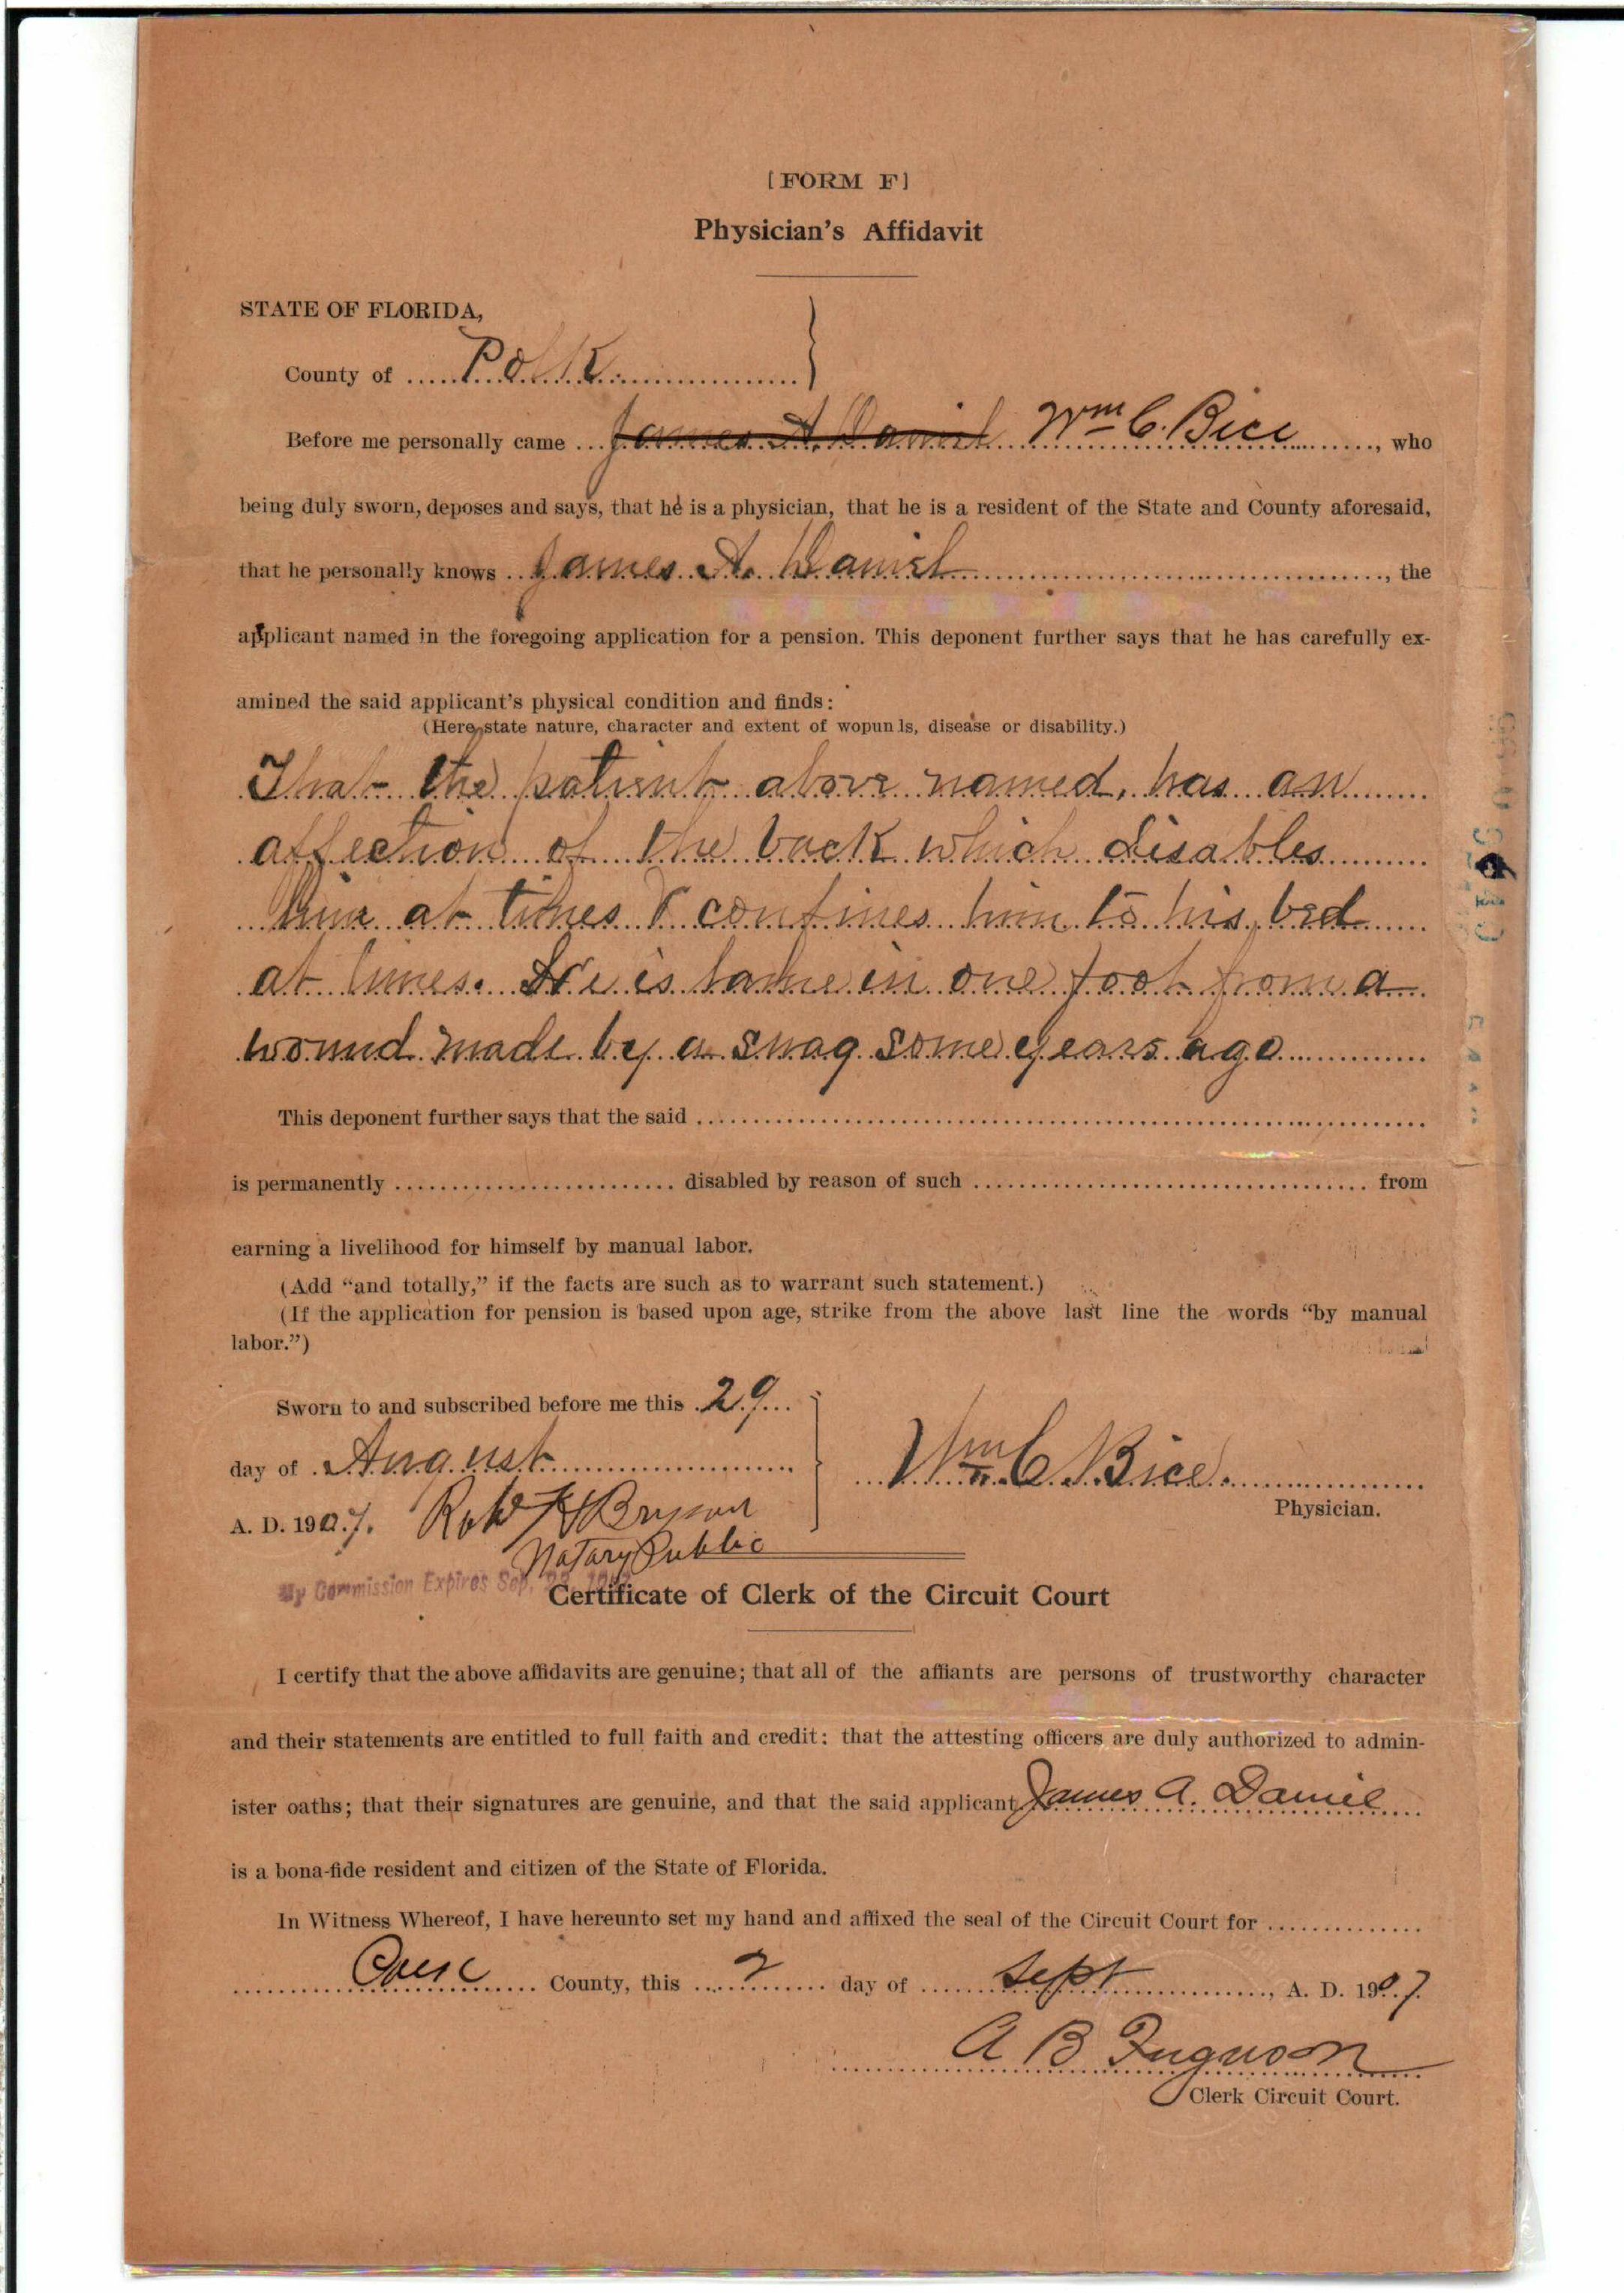 [FORM F]
Physician's Affidavit
STATE OF FLORIDA,
County of Polk
Before me personally came James A. Daniel Wm C. Bice, who
being duly sworn, deposes and says, that he is a physician, that he is a resident of the State and County aforesaid,
that he personally knows James A. Daniel, the
applicant named in the foregoing application for a pension. This deponent further says that he has carefully ex-
amined the said applicant's physical condition and finds:
(Here state nature, character and extent of wopunls, disease or disability.)
That the patient above named, has an
affection of the back which disables
him at times & confines him to his bed
at times. He is lame in one foot from a
wound made by a snag some years ago
This deponent further says that the said
is permanently disabled by reason of such from
earning a livelihood for himself by manual labor.
(Add "and totally," if the facts are such as to warrant such statement.)
(If the application for pension is based upon age, strike from the above last line the words "by manual
labor.")
Sworn to and subscribed before me this 29
day of August
Wm C Bice.
Physician.
A. D. 1907. Robt H Bryson
Notary Public
My Commission Expires Sep.
Certificate of Clerk of the Circuit Court
I certify that the above affidavits are genuine; that all of the affiants are persons of trustworthy character
and their statements are entitled to full faith and credit: that the attesting officers are duly authorized to admin-
ister oaths; that their signatures are genuine, and that the said applicant James A. Daniel
is a bona-fide resident and citizen of the State of Florida.
In Witness Whereof, I have hereunto set my hand and affixed the seal of the Circuit Court for
County, this 2 day of Sept, A. D. 1907.
A B Ferguson
Clerk Circuit Court.